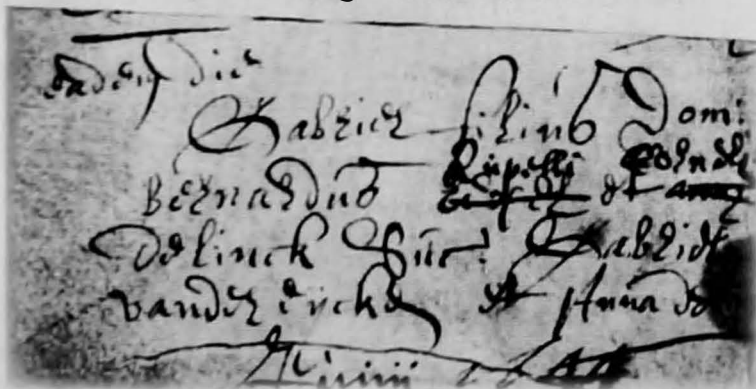 eadem die
Gabriel filius Dom:
Bernardus Rupelli Cornel
et
Delinck Sus: Gabriel
vander eycken et Anna de